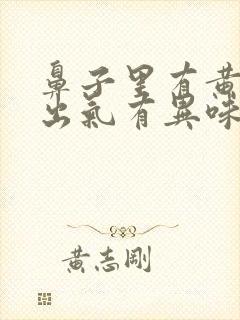 鼻子里有黄
出氣有異味
黃志剛